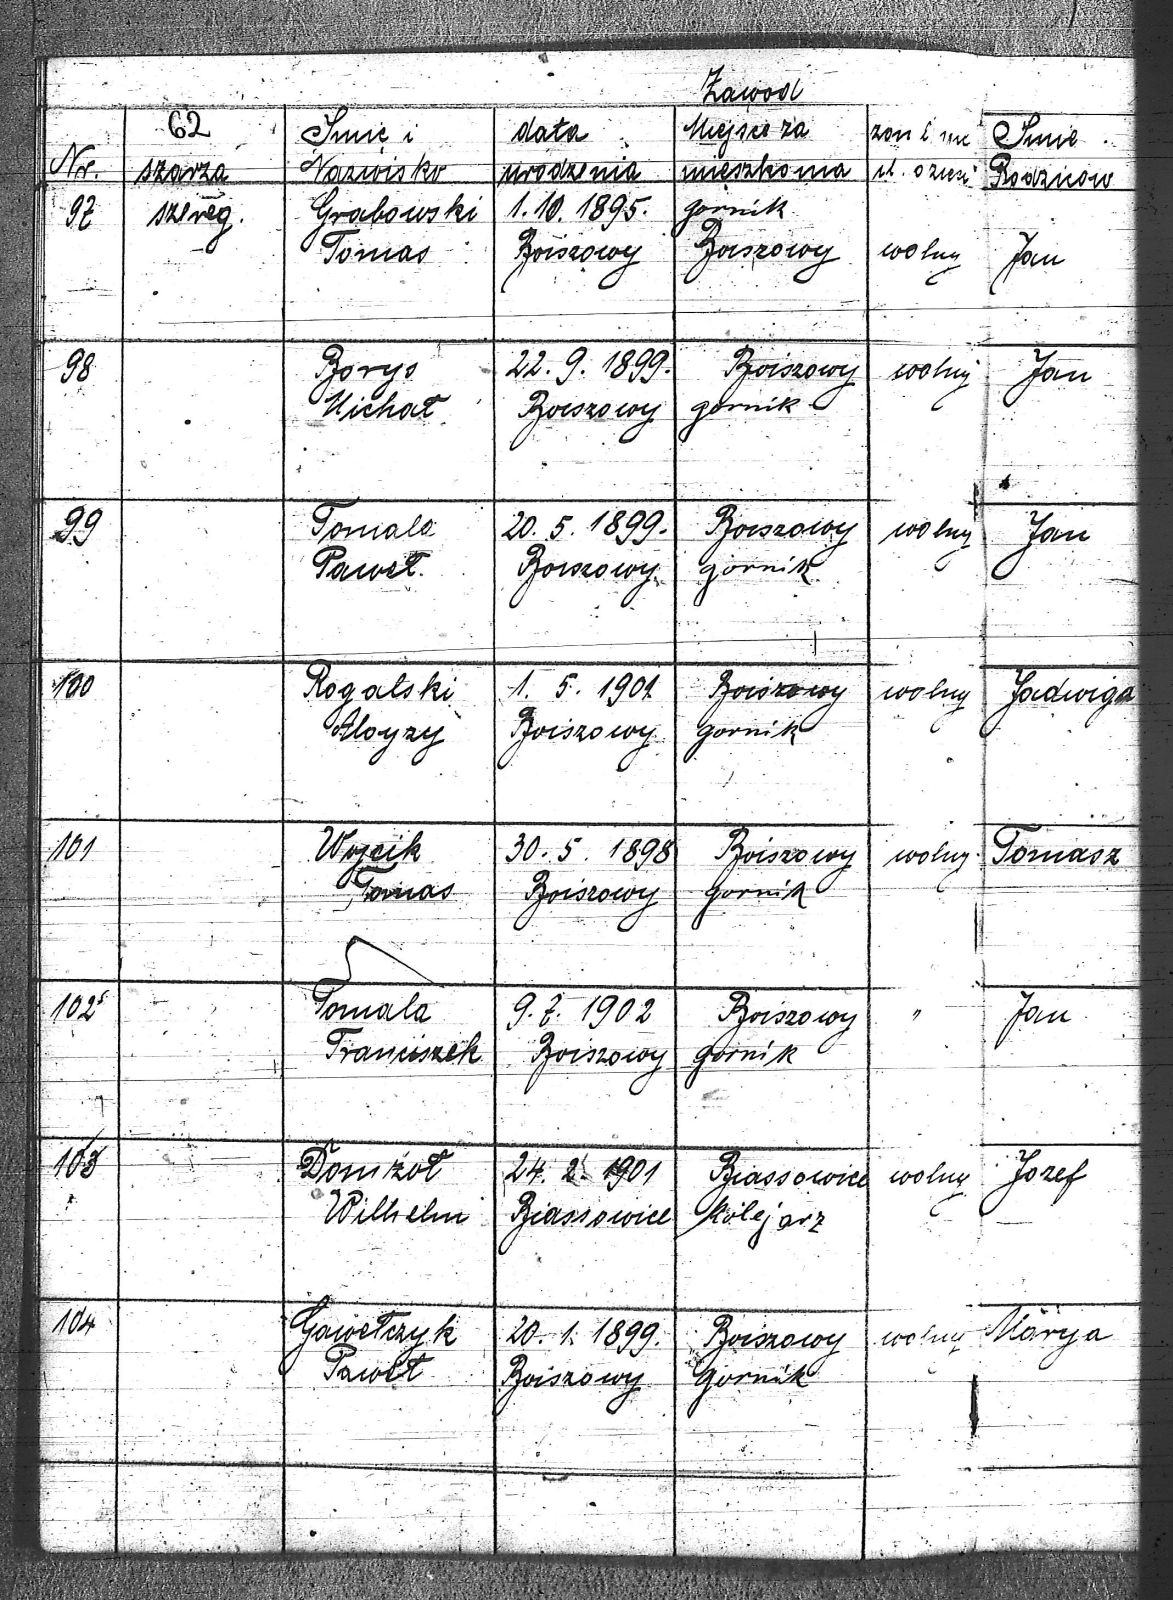 Zawod
62 Imie i data Miejsce za żon l. nie Imie
Nr. szarza Nazwisko urodzenia mieszkania il. dzieci Rodzicow
97 szereg. Grabowski 1. 10. 1895. gornik
Tomas Boiszowy Boiszowy wolny Jan
98 Borys 22. 9. 1899. Boiszowy wolny Jan
Michał Boiszowy gornik
99 Tomala 20. 5. 1899. Boiszowy wolny Jan
Paweł. Boiszowy gornik
100 Rogalski 1. 5. 1901 Boiszowy wolny Jadwiga
Aloyzy Boiszowy gornik
101 Wojcik 30. 5. 1898 Boiszowy wolny Tomasz
Tomas Boiszowy Gornik
102 Tomala 9. 7. 1902 Boiszowy " Jan
Franciszek Boiszowy gornik
103 Domżoł 24. 2. 1901 Biassowice wolny Jozef
Wilhelm Biassowice Kolejarz
104 Gawełczyk 20. 1. 1899. Boiszowy wolny Marya
Paweł Boiszowy Gornik